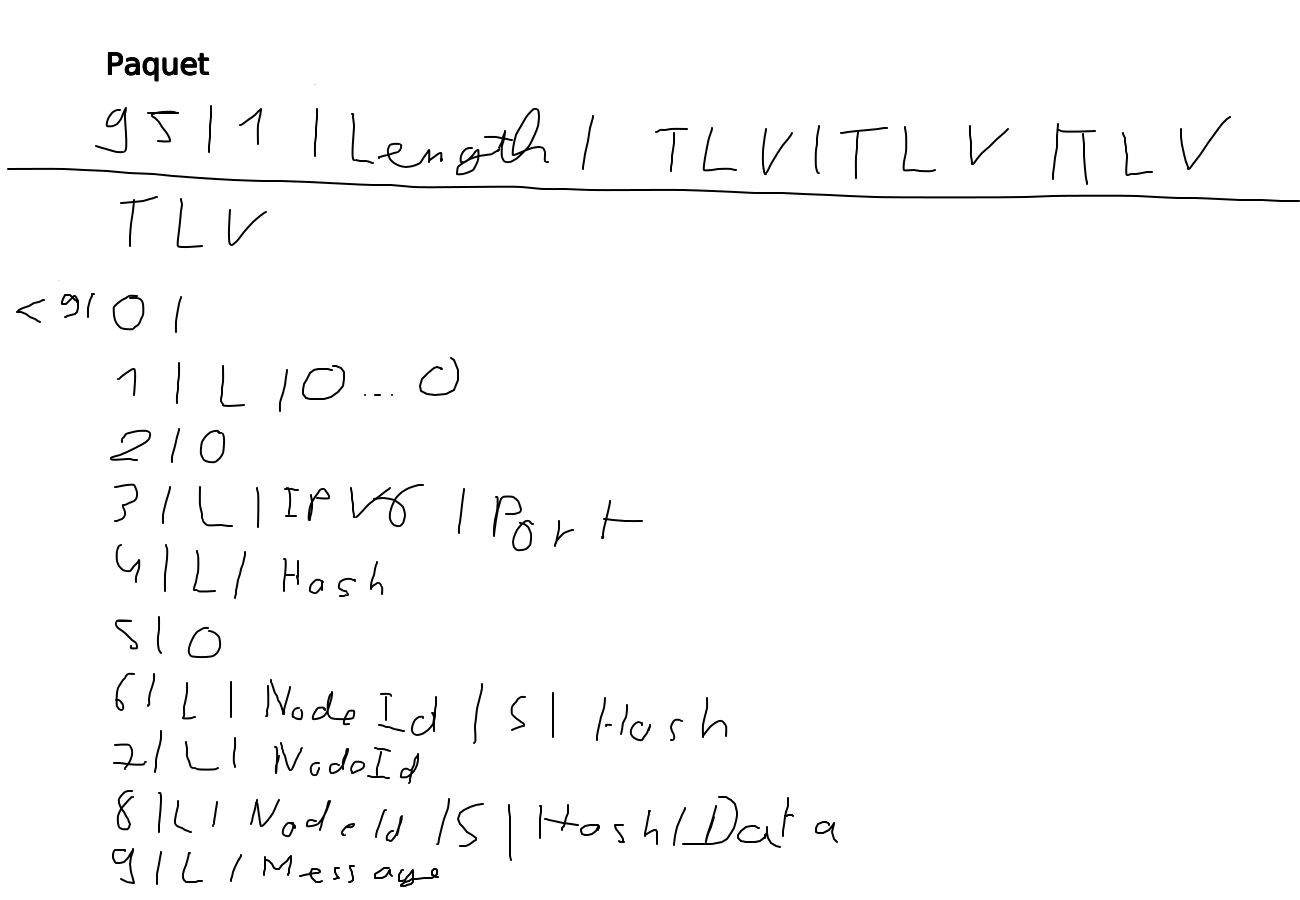 Paquet
95 | 1 | Length | TLV | TLV | TLV
TLV
< 9 | 0 |
1 | L | 0 ... 0
2 | 0
3 | L | IPV6 | Port
4 | L | Hash
5 | 0
6 | L | NodeId | S | Hash
7 | L | NodeId
8 | L | NodeId | S | Hash | Data
9 | L | Message